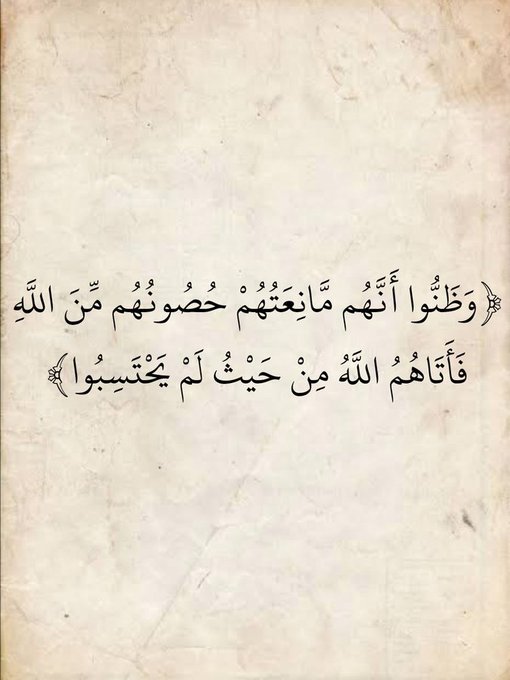 ﴿وَظَنُّوا أَنَّهُم مَّانِعَتُهُمْ حُصُونُهُم مِّنَ اللَّهِ
فَأَتَاهُمُ اللَّهُ مِنْ حَيْثُ لَمْ يَحْتَسِبُوا﴾